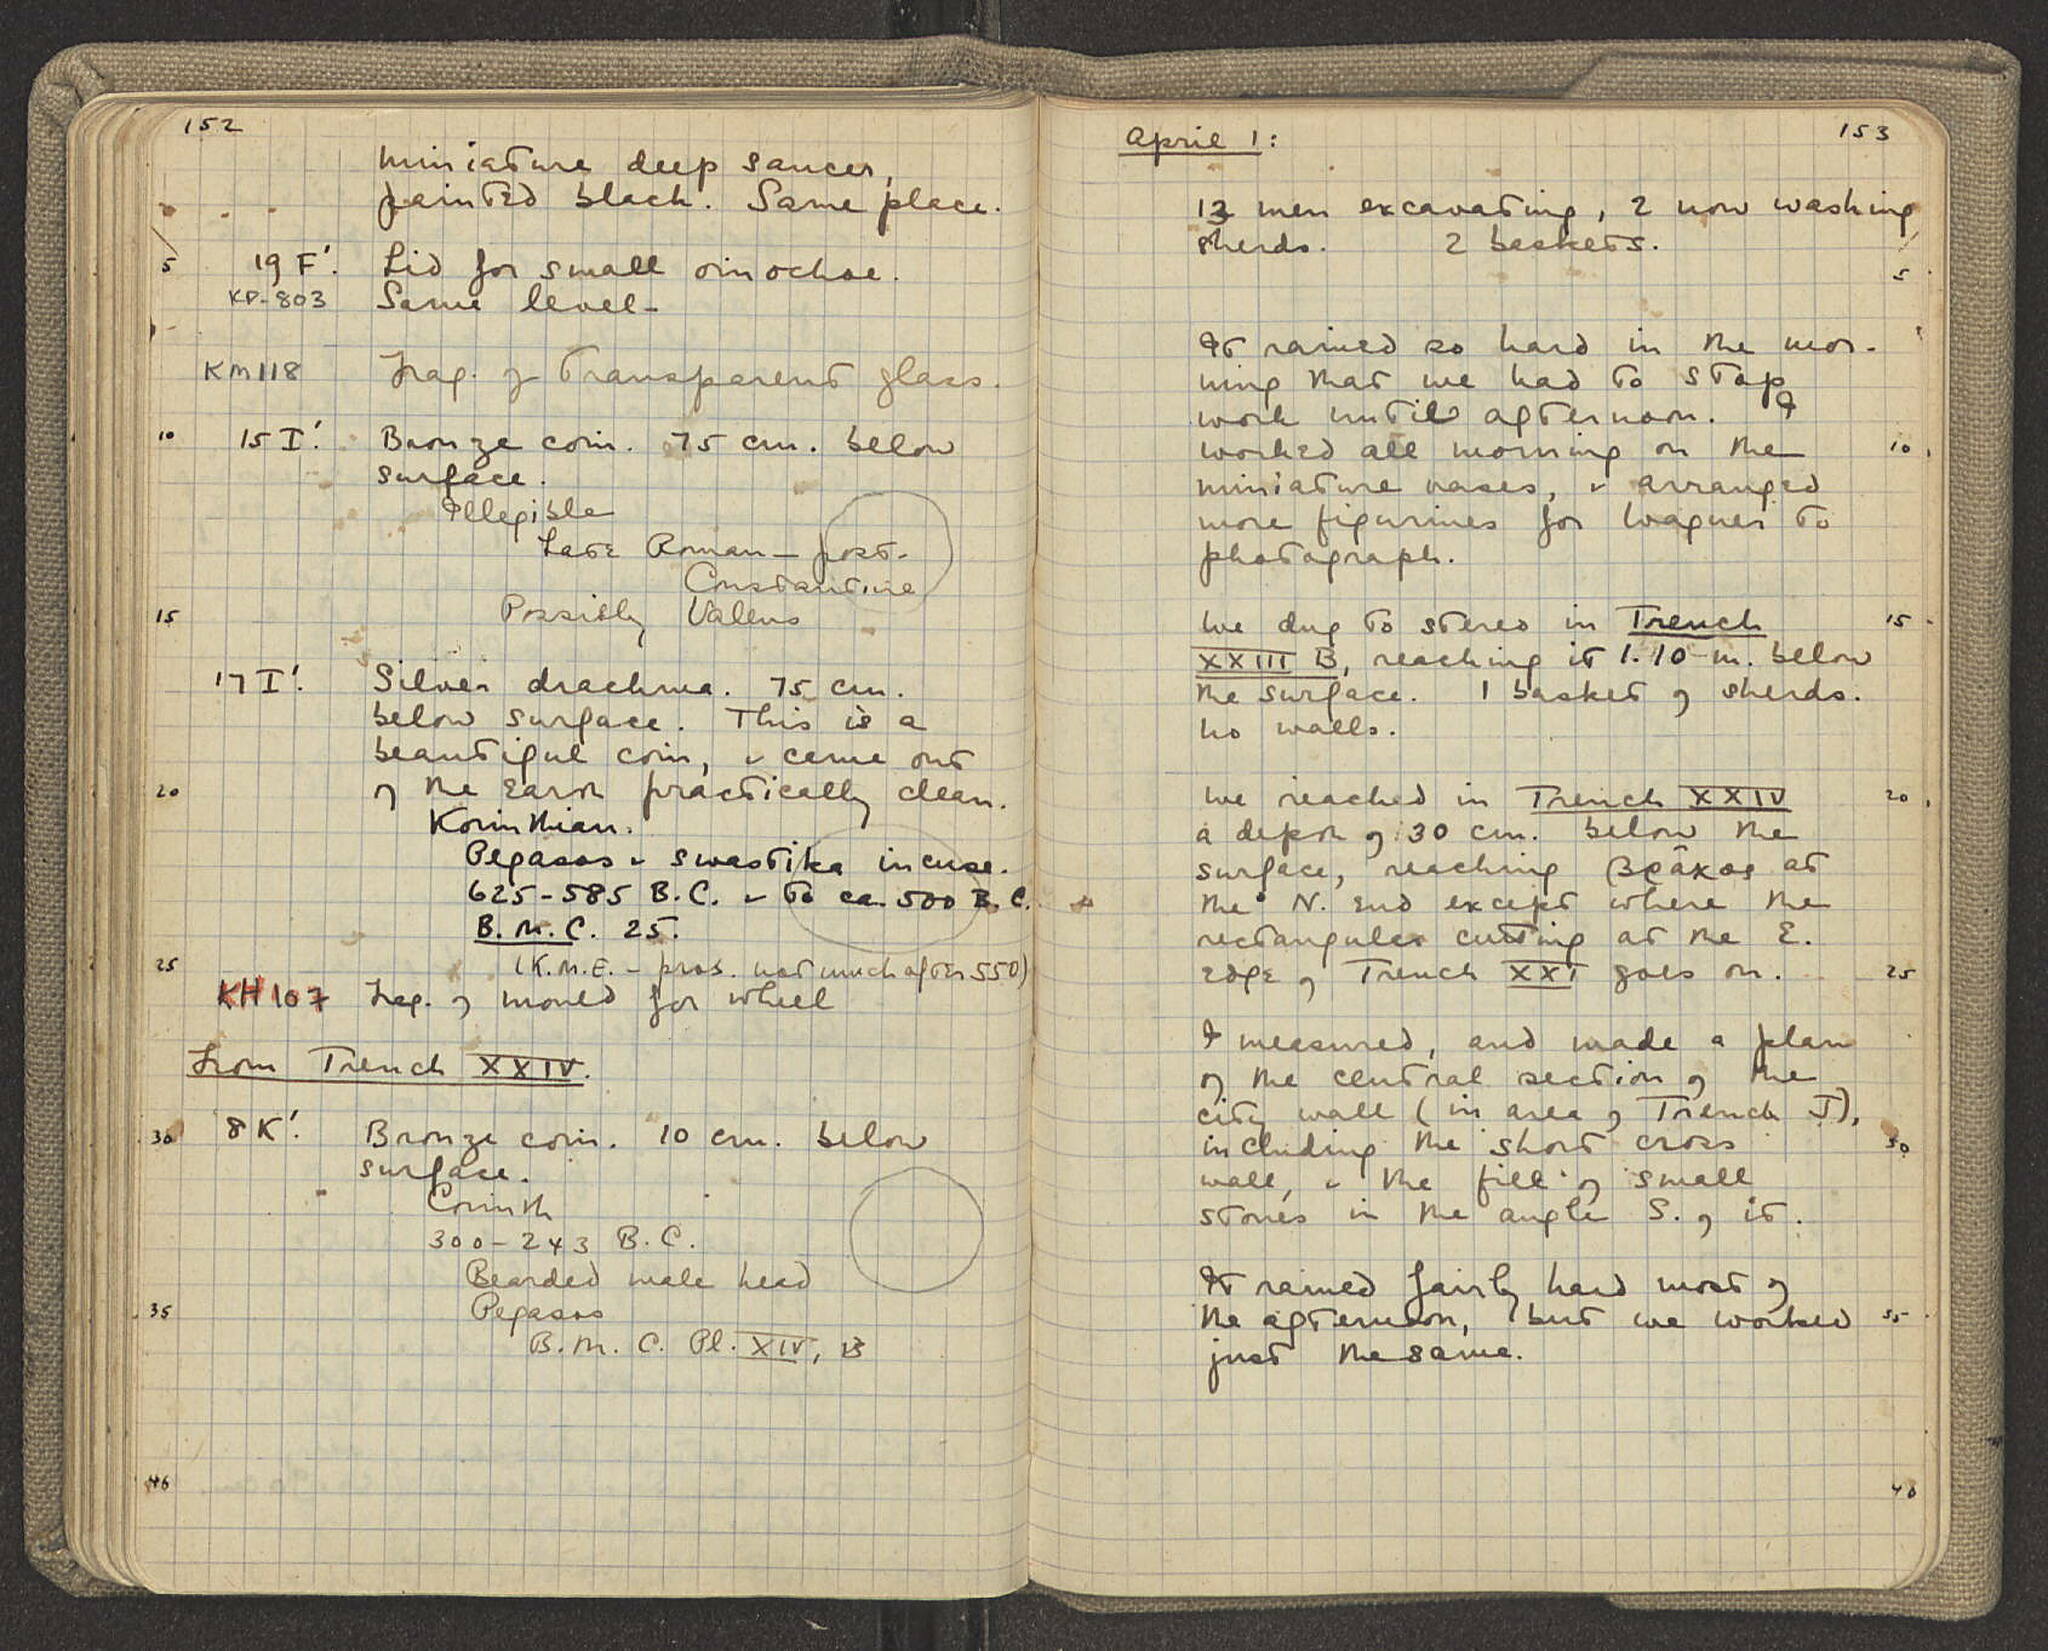 152
miniature deep saucer,
painted black. Same place.
5
19 F'. Lid for small oinochoe.
KP-803 Same level-
KM118 Frag. of transparent glass.
10 15 I'. Bronze coin. 75 cm. below
surface.
Illegible
Late Roman - post-
Constantine
15 Possibly Valens
17 I'. Silver drachma. 75 cm.
below surface. This is a
beautiful coin, & came out
20 of the earth practically clean.
Korinthian.
Pegasos & swastika incuse.
625-585 B.C. & to ca. 500 B.C.
B.M.C. 25.
25 (K.M.E. - prob. not much after 550)
KH 107 Frag. of mould for wheel
From Trench XXIV.
30 8 K'. Bronze coin. 10 cm. below
surface.
Corinth
300-243 B.C.
Bearded male head
35 Pegasos
B.M.C. Pl. XIV, 13
40
153
April 1:
12 men excavating, 2 now washing
sherds. 2 baskets.
5
It rained so hard in the mor-
ning that we had to stop
work until afternoon. I
worked all morning on the 10
miniature vases, & arranged
more figurines for Wagner to
photograph.
We dug to stereo in Trench 15
XXIII B, reaching it 1.10 m. below
the surface. 1 basket of sherds.
No walls.
We reached in Trench XXIV 20
a depth of 30 cm. below the
surface, reaching βράχος at
the N. end except where the
rectangular cutting at the E.
edge of Trench XXI goes on. 25
I measured, and made a plan
of the central section of the
city wall (in area of Trench J),
including the short cross 30
wall, & the fill of small
stones in the angle S. of it.
It rained fairly hard most of
the afternoon, but we worked 35
just the same.
40